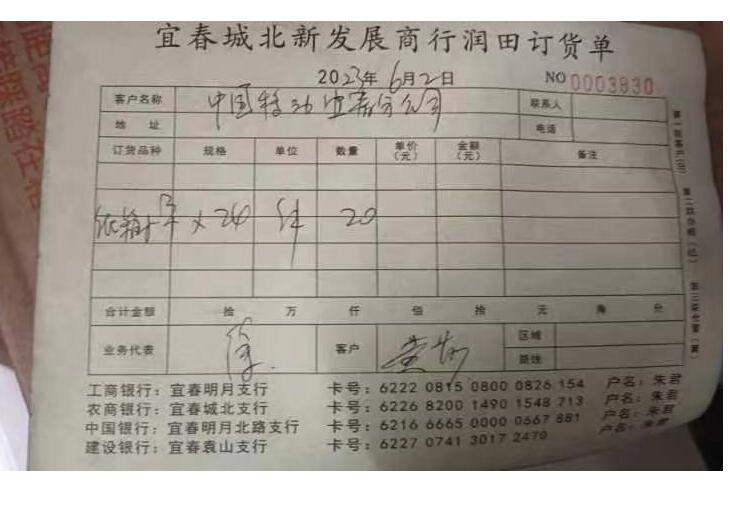 宜春城北新发展商行润田订货单
2023年6月2日 NO 0003830
客户名称 中国移动宜春分公司 联系人
地 址 电话
订货品种 规格 单位 数量 单价(元) 金额(元) 备注
×24 件 20
合计金额 拾 万 仟 佰 拾 元 角 分
业务代表 客户 区域
路线
工商银行：宜春明月支行 卡号：6222 0815 0800 0826 154 户名：朱君
农商银行：宜春城北支行 卡号：6226 8200 1490 1548 713 户名：朱君
中国银行：宜春明月北路支行 卡号：6216 6665 0000 0667 881 户名：朱君
建设银行：宜春袁山支行 卡号：6227 0741 3017 2470 户名：朱君